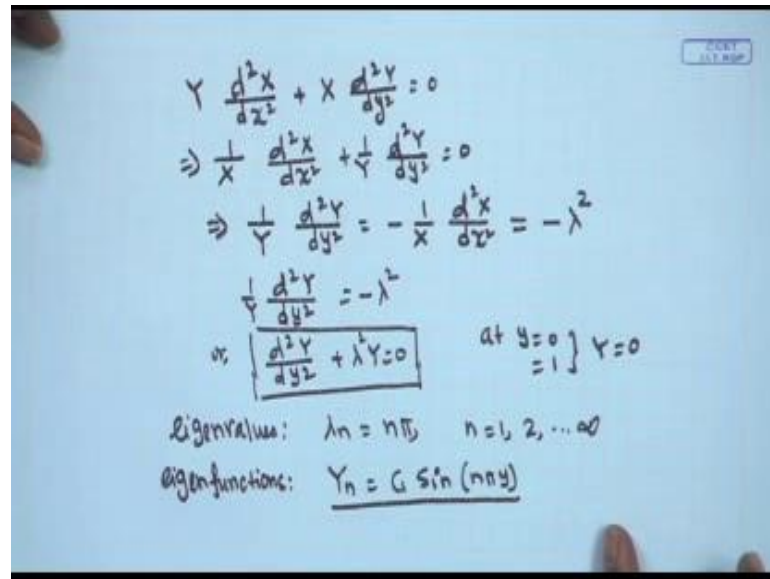 Y d²X/dx² + X d²Y/dy² = 0
⇒ 1/X d²X/dx² + 1/Y d²Y/dy² = 0
⇒ 1/Y d²Y/dy² = - 1/X d²X/dx² = -λ²
1/Y d²Y/dy² = -λ²
or, d²Y/dy² + λ²Y = 0 at y=0 =1 } Y=0
eigenvalues: λn = nπ, n=1, 2, ... ∞
eigenfunctions: Yn = C₁ Sin (nπy)